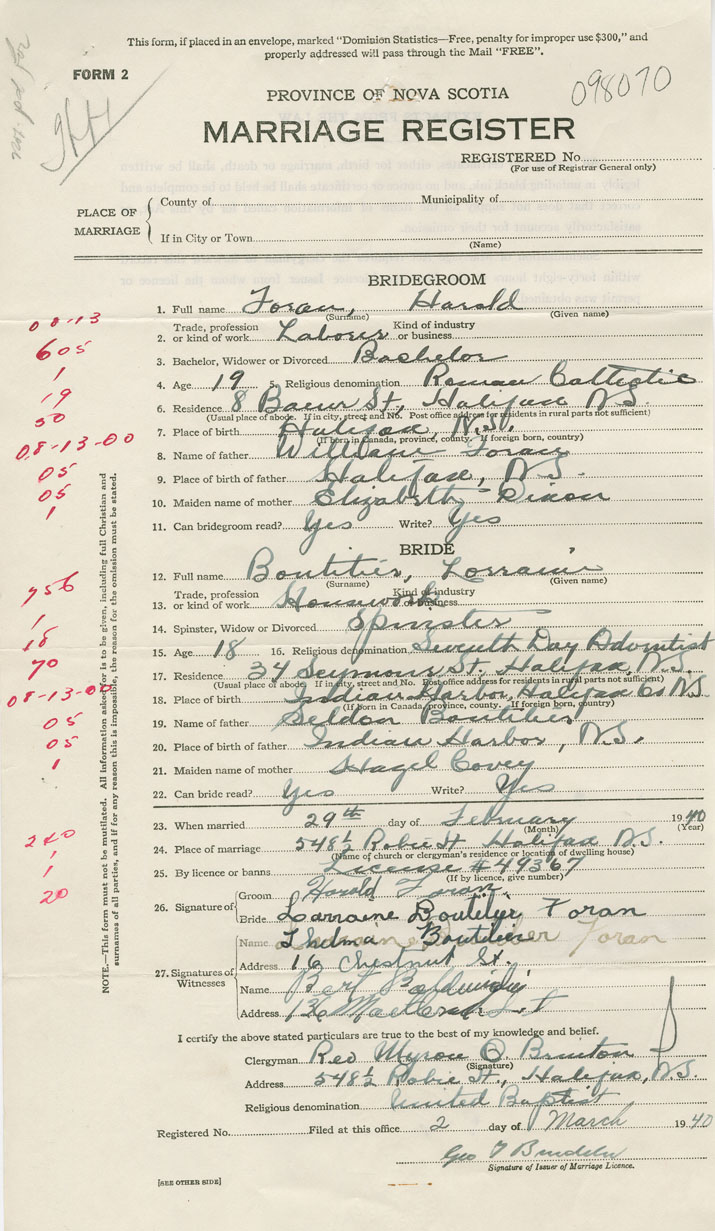 This form, if placed in an envelope, marked "Dominion Statistics—Free, penalty for improper use $300," and
properly addressed will pass through the Mail "FREE".
FORM 2
098070
PROVINCE OF NOVA SCOTIA
MARRIAGE REGISTER
REGISTERED No.
(For use of Registrar General only)
PLACE OF MARRIAGE
County of Municipality of
If in City or Town
(Name)
BRIDEGROOM
08-13
1. Full name Foran, Harold
(Surname) (Given name)
605
2. Trade, profession or kind of work Laborer Kind of industry or business
1
3. Bachelor, Widower or Divorced Bachelor
19
4. Age 19 5. Religious denomination Roman Catholic
50
6. Residence 8 Bauer St, Halifax N.S.
(Usual place of abode. If in city, street and No. Post office address for residents in rural parts not sufficient)
08-13-00
7. Place of birth Halifax, N.S.
(If born in Canada, province, county. If foreign born, country)
8. Name of father William Foran
05
9. Place of birth of father Halifax, N.S.
05
10. Maiden name of mother Elizabeth Dixon
1
11. Can bridegroom read? Yes Write? Yes
BRIDE
12. Full name Boutilier, Lorraine
(Surname) (Given name)
756
13. Trade, profession or kind of work Housework Kind of industry or business
1
14. Spinster, Widow or Divorced Spinster
18
15. Age 18 16. Religious denomination Seventh Day Adventist
70
17. Residence 34 Seymour St, Halifax, N.S.
(Usual place of abode. If in city, street and No. Post office address for residents in rural parts not sufficient)
08-13-00
18. Place of birth Indian Harbor, Halifax Co N.S.
(If born in Canada, province, county. If foreign born, country)
05
19. Name of father Seldon Boutilier
05
20. Place of birth of father Indian Harbor, N.S.
1
21. Maiden name of mother Hazel Covey
22. Can bride read? Yes Write? Yes
23. When married 29th day of February 1940
(Month) (Year)
240
24. Place of marriage 548½ Robie St Halifax N.S.
(Name of church or clergyman's residence or location of dwelling house)
1
1
25. By licence or banns License #49367
(If by licence, give number)
20
26. Signature of
Groom Harold Foran
Bride Lorraine Boutilier Foran
27. Signatures of Witnesses
Name Thelma Boutilier
Address 16 Chestnut St.
Name Bert
Address 136
I certify the above stated particulars are true to the best of my knowledge and belief.
Clergyman Rev Myron O. Brinton
(Signature)
Address 548½ Robie St, Halifax, N.S.
Religious denomination United Baptist
Registered No. Filed at this office 2 day of March 1940
Geo
Signature of Issuer of Marriage Licence.
[SEE OTHER SIDE]
NOTE.—This form must not be mutilated. All information asked for is to be given, including full Christian and
surnames of all parties, and if for any reason this is impossible, the reason for the omission must be stated.